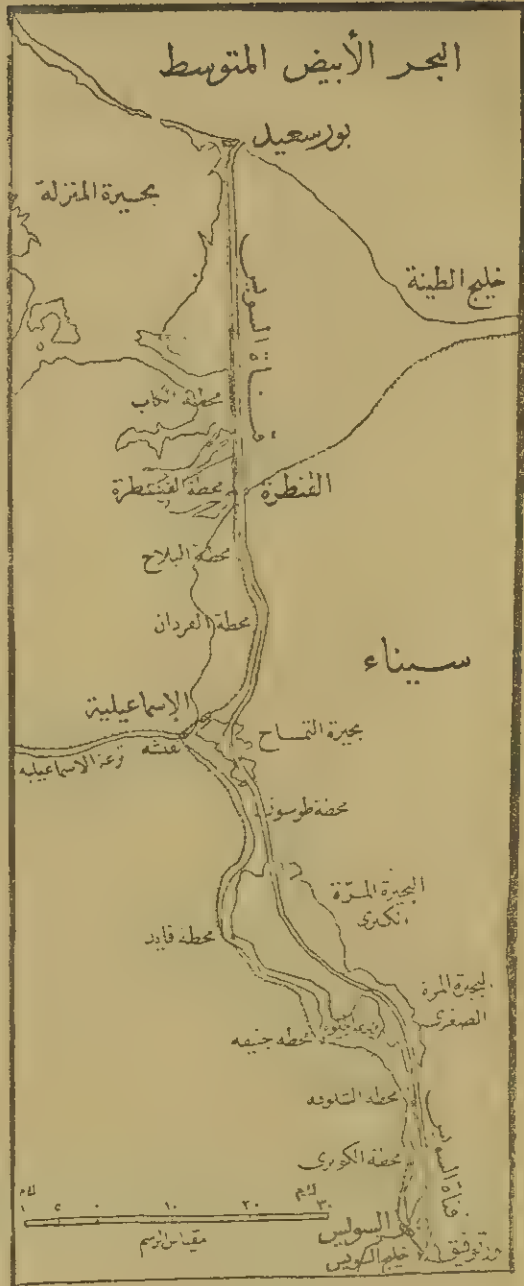 البحر الأبيض المتوسط
بورسعيد
بحيرة المنزلة
خليج الطينة
قناة السويس
محطة الكاب
محطة القنطرة
القنطرة
محطة البلاح
محطة الفردان
سيناء
الإسماعيلية
بحيرة التمساح
نفيشه
ترعة الاسماعيليه
محطة طوسون
البحيرة المرّة
الكبرى
محطه فايد
البحيرة المرة
الصغرى
محطه جنيفه
محطه الشلوفه
محطة الكوبرى
قناة السويس
كم
١٠
٢٠
٣٠
كم
مقياس الرسم
السويس
خليج السويس